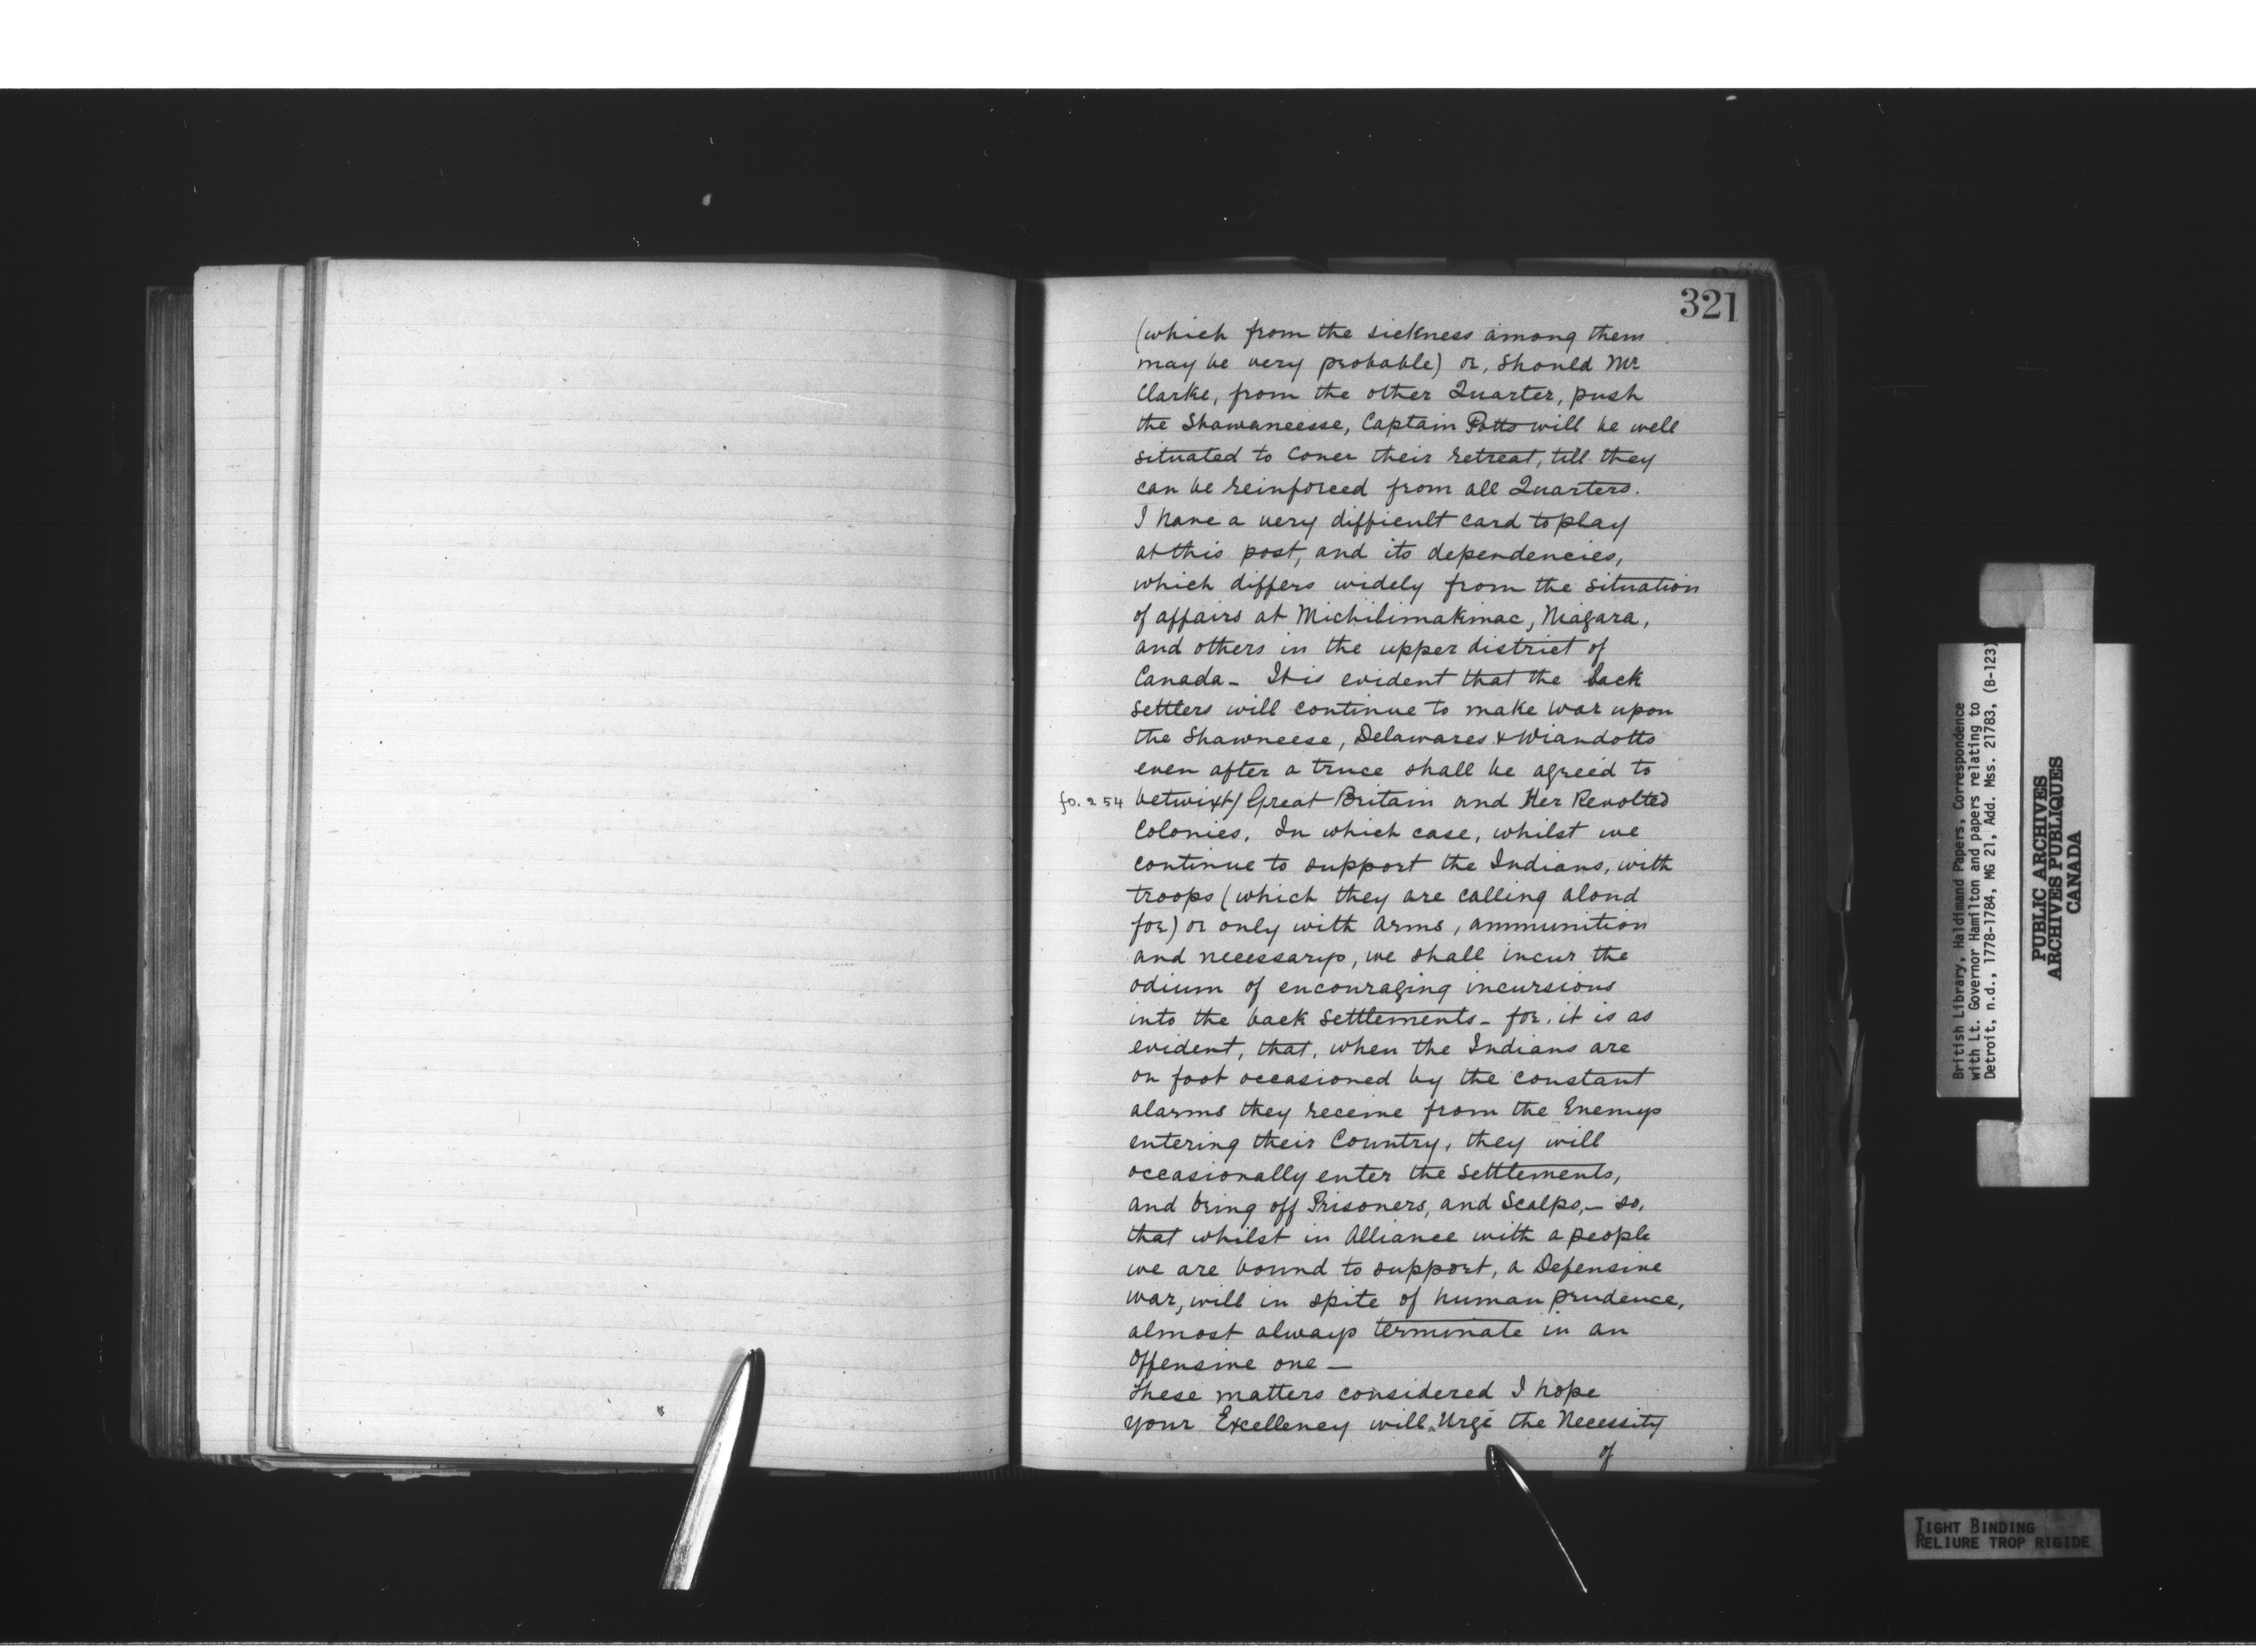 321
(which from the sickness among them
may be very probable) or, should Mr
Clarke, from the other Quarter, push
the Shawaneesse, Captain Potts will be well
situated to cover their retreat, till they
can be reinforced from all Quarters.
I have a very difficult card to play
at this post, and its dependencies,
which differs widely from the situation
of affairs at Michilimakinac, Niagara,
and others in the upper district of
Canada - It is evident that the back
settlers will continue to make war upon
the Shawneese, Delawares & Wiandotts
even after a truce shall be agreed to
fo. 254 betwixt/ Great Britain and Her Revolted
Colonies. In which case, whilst we
continue to support the Indians, with
troops (which they are calling aloud
for) or only with arms, ammunition
and necessarys, we shall incur the
odium of encouraging incursions
into the back settlements - for, it is as
evident, that, when the Indians are
on foot occasioned by the constant
alarms they receive from the Enemys
entering their Country, they will
occasionally enter the settlements,
and bring off Prisoners, and Scalps, - so,
that whilst in Alliance with a people
we are bound to support, a Defensive
war, will in spite of human prudence,
almost always terminate in an
Offensive one -
These matters considered I hope
your Excellency will Urge the Necessity
of
British Library, Haldimand Papers, Correspondence
with Lt. Governor Hamilton and papers relating to
Detroit, n.d., 1778-1784, MG 21, Add. Mss. 21783, (B-123)
PUBLIC ARCHIVES
ARCHIVES PUBLIQUES
CANADA
TIGHT BINDING
RELIURE TROP RIGIDE